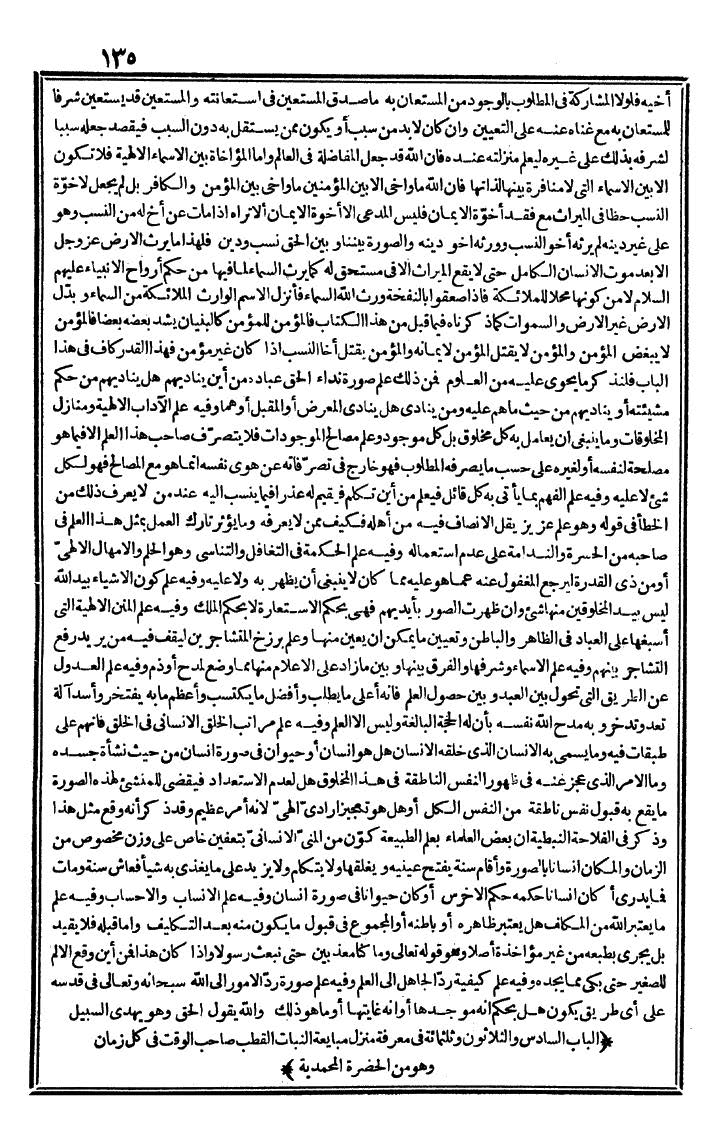 ١٣٥
أخيه فلولا المشاركة فى المطلوب بالوجود من المستعان به ماصدق المستعين فى استعانته والمستعين قد يستعين شرفا
للمستعان به مع غناه عنه على التعيين وان كان لابد من سبب أو يكون ممن يستقل به دون السبب فيقصد جعله سببا
لشرفه بذلك على غيره ليعلم منزلته عنده فان الله قد جعل المفاضلة فى العالم واما المؤاخاة بين الاسماء الالهية فلاتكون
الابين الاسماء التى لامنافرة بينها لذاتها فان الله ماواخى الابين المؤمنين ماواخى بين المؤمن والكافر بل لم يجعل لاخوّة
النسب حظافى الميراث مع فقد أخوّة الايمان فليس المدعى الاأخوة الايمان ألاتراه اذامات عن أخ له من النسب وهو
على غير دينه لم يرثه أخو النسب وورثه اخو دينه والصورة بيننا و بين الحق نسب ودين فلهذا مايرث الارض عزوجل
الابعد موت الانسان الكامل حتى لايقع الميراث الافى مستحق له كمايرث السماء لمافيها من حكم أرواح الانبياء عليهم
السلام لامن كونها محلا للملائكة فاذاصعقوا بالنفخة ورث الله السماء فأنزل الاسم الوارث الملائكة من السماء و بدّل
الارض غير الارض والسموات كماذكرناه فيما قبل من هذا الكتاب فالمؤمن للمؤمن كالبنيان يشد بعضه بعضا فالمؤمن
لايبغض المؤمن والمؤمن لايقتل المؤمن لايمانه والمؤمن يقتل أخا النسب اذا كان غير مؤمن فهذا القدر كاف فى هذا
الباب فلنذكر مايحوى عليه من العلوم فمن ذلك علم صورة نداء الحق عباده من أين يناديهم هل يناديهم من حكم
مشيئته أو يناديهم من حيث ماهم عليه ومن ينادى هل ينادى المعرض أو المقبل أوهما وفيه علم الآداب الالهية ومنازل
المخلوقات وماينبغى ان يعامل به كل مخلوق بل كل موجود وعلم مصالح الموجودات فلايتصرّف صاحب هذا العلم الافيماهو
مصلحة لنفسه أولغيره على حسب مايصرفه المطلوب فهو خارج فى تصرّفاته عن هوى نفسه انماهو مع المصالح فهو لكل
شئ لاعليه وفيه علم الفهم بمايأتى به كل قائل فيعلم من أين تكلم فيقيم له عذرا فيما ينسب اليه عند من لايعرف ذلك من
الخطأ فى قوله وهو علم عزيز يقل الانصاف فيه من أهله فكيف ممن لايعرفه ومايؤثر تارك العمل بمثل هذا العلم فى
صاحبه من الحسرة والندامة على عدم استعماله وفيه علم الحكمة فى التغافل والتناسى وهو الحلم والامهال الالهىّ
أومن ذى القدرة ليرجع المغفول عنه عماهو عليه مما كان لاينبغى أن يظهر به ولاعليه وفيه علم كون الاشياء بيد الله
ليس بيد المخلوقين منها شئ وان ظهرت الصور بأيديهم فهى بحكم الاستعارة لابحكم الملك وفيه علم المنن الالهية التى
أسبغها على العباد فى الظاهر والباطن وتعيين مايمكن ان يعين منها وعلم برزخ المتشاجرين ليقف فيه من يريد رفع
التشاجر بينهم وفيه علم الاسماء وشرفها والفرق بينها و بين مازاد على الاعلام منها مما وضع لمدح أوذم وفيه علم العدول
عن الطريق التى تحول بين العبد و بين حصول العلم فانه أعلى مايطلب وأفضل مايكتسب وأعظم مابه يفتخر وأسد آلة
تعد وتدخر و به مدح الله نفسه بأن له الحجة البالغة وليس الا العلم وفيه علم مراتب الخلق الانسانى فى الخلق فانهم على
طبقات فيه ومايسمى به الانسان الذى خلقه الانسان هل هو انسان أوحيوان فى صورة انسان من حيث نشأة جسده
وما الامر الذى عجز عنه فى ظهور النفس الناطقة فى هذا المخلوق هل لعدم الاستعداد فيقضى للمنشئ لهذه الصورة
مايقع به قبول نفس ناطقة من النفس الكل أوهل هو تعجيز ارادىّ الهىّ لانه أمر عظيم وقدذكر أنه وقع مثل هذا
وذكر فى الفلاحة النبطية ان بعض العلماء بعلم الطبيعة كوّن من المنىّ الانسانىّ بتعفين خاص على وزن مخصوص من
الزمان والمكان انسانا بالصورة وأقام سنة يفتح عينيه و يغلقها ولايتكلم ولايزيد على مايغذى به شيأ فعاش سنة ومات
فمايدرى أكان انسانا حكمه حكم الاخرس أوكان حيوانا فى صورة انسان وفيه علم الانساب والاحساب وفيه علم
مايعتبر الله من المكلف هل يعتبر ظاهره أو باطنه أو المجموع فى قبول مايكون منه بعد التكليف واما قبله فلايقيد
بل يجرى بطبعه من غير مؤاخذة أصلا وهو قوله تعالى وما كنا معذبين حتى نبعث رسولا واذا كان هذا فمن أين وقع الالم
للصغير حتى بكى ممايجده وفيه علم كيفية ردّ الجاهل الى العلم وفيه علم صورة ردّ الامور الى الله سبحانه وتعالى فى قدسه
على أى طريق يكون هل بحكم انه موجدها أوانه غايتها أوماهو ذلك والله يقول الحق وهو يهدى السبيل
﴿الباب السادس والثلاثون وثلثمائة فى معرفة منزل مبايعة النبات القطب صاحب الوقت فى كل زمان
وهو من الحضرة المحمدية﴾